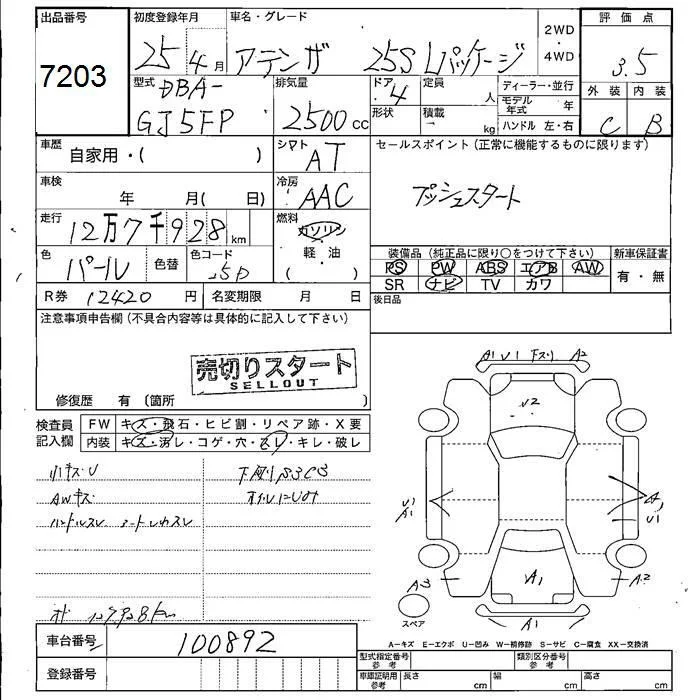 出品番号 初度登録年月 車名・グレード 2WD・4WD 評価点
7203 25年4月 アテンザ 25S Lパッケージ 3.5
型式 DBA- 排気量 ドア 4 定員 人 ディーラー・並行 外装 内装
GJ5FP 2500cc 形状 積載 kg モデル年式 年 C B
ハンドル 左・右
車歴 自家用・( ) シフト AT セールスポイント (正常に機能するものに限ります)
車検 年 月( 日) 冷房 AAC プッシュスタート
走行 12万7千928km 燃料 ガソリン
軽・油
( )
色 パール 色替 色コード 25D 装備品 (純正品に限り○をつけて下さい) 新車保証書
PS PW ABS エアB AW 有・無
SR ナビ TV カワ
R券 12420円 名変期限 月 日 後日品
注意事項申告欄 (不具合内容等は具体的に記入して下さい)
売切りスタート
SELLOUT
修復歴 有 (箇所 )
検査員記入欄 FW キズ・飛石・ヒビ割・リペア跡・X要
内装 キズ・汚レ・コゲ・穴・スレ・キレ・破レ
小キズU
AWキズ
ハンドルスレ シートレカスレ
A1 U1 下ズリ A2
U2
U1
A1
U1
A3
A1
A2
スペア
A1
車台番号 100892
登録番号
A−キズ E−エクボ U−凹み W−補修跡 S−サビ C−腐食 XX−交換済
型式指定番号 参考 類別区分番号 参考
車庫証明用 参考 長さ cm 幅 cm 高さ cm